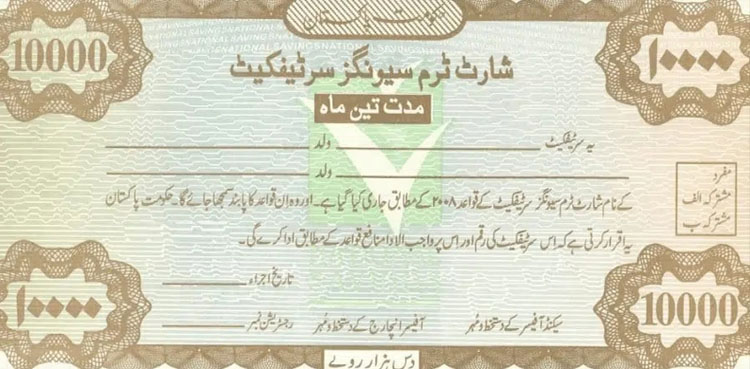 حکومت پاکستان
10000
۱۰۰۰۰
شارٹ ٹرم سیونگز سرٹیفکیٹ
مدت تین ماہ
یہ سرٹیفکیٹ ولد
ولد
کے نام شارٹ ٹرم سیونگز سرٹیفکیٹ کے قواعد ۲۰۰۸ کے مطابق جاری کیا گیا ہے۔ اور وہ ان قواعد کا پابند سمجھا جائے گا۔ حکومت پاکستان
یہ اقرار کرتی ہے کہ اس سرٹیفکیٹ کی رقم اور اس پر واجب الادا منافع قواعد کے مطابق ادا کرے گی۔
مفرد
مشترکہ الف
مشترکہ ب
تاریخ اجراء
سیکنڈ آفیسر کے دستخط و مُہر آفیسر انچارج کے دستخط و مُہر رجسٹریشن نمبر
۱۰۰۰۰
10000
دس ہزار روپے